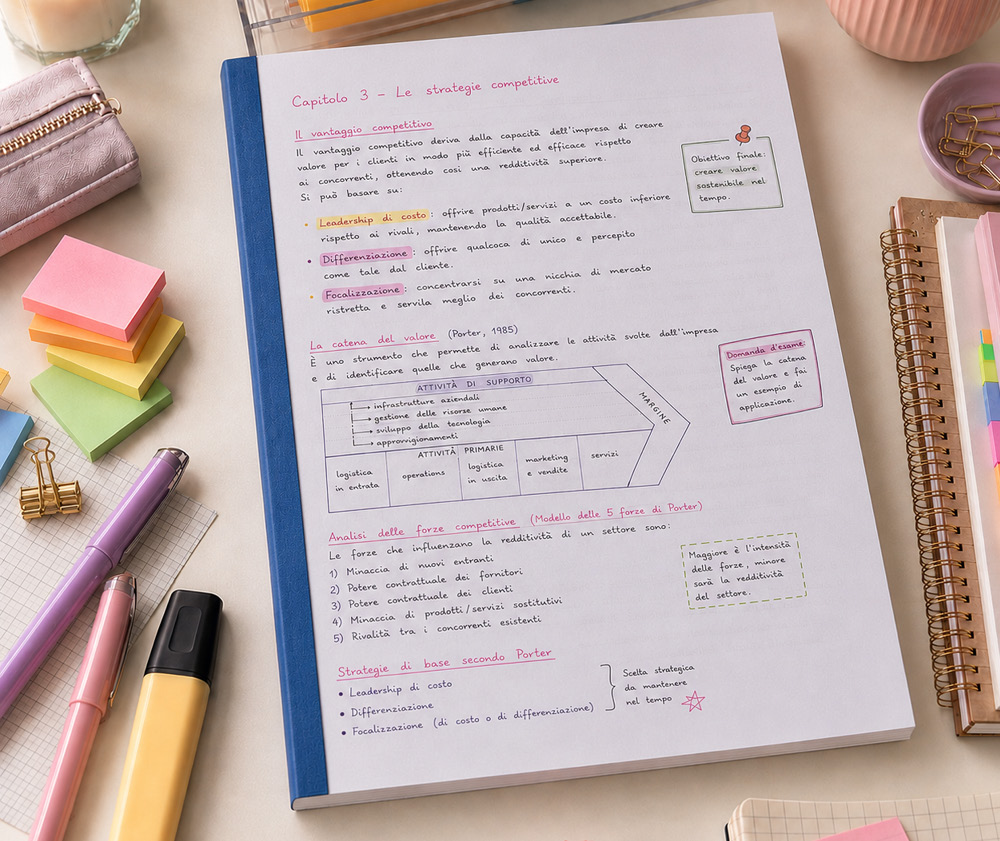 Capitolo 3 – Le strategie competitive
Il vantaggio competitivo
Il vantaggio competitivo deriva dalla capacità dell'impresa di creare
valore per i clienti in modo più efficiente ed efficace rispetto
ai concorrenti, ottenendo così una redditività superiore.
Si può basare su:
Obiettivo finale:
creare valore
sostenibile nel
tempo.
• Leadership di costo: offrire prodotti/servizi a un costo inferiore
rispetto ai rivali, mantenendo la qualità accettabile.
• Differenziazione: offrire qualcoca di unico e percepito
come tale dal cliente.
• Focalizzazione: concentrarsi su una nicchia di mercato
ristretta e servila meglio dei concorrenti.
La catena del valore (Porter, 1985)
È uno strumento che permette di analizzare le attività svolte dall'impresa
e di identificare quelle che generano valore.
Domanda d'esame
Spiega la catena
del valore e fai
un esempio di
applicazione.
ATTIVITÀ DI SUPPORTO
infrastrutture aziendali
gestione delle risorse umane
sviluppo della tecnologia
approvvigionamenti
MARGINE
ATTIVITÀ PRIMARIE
logistica
in entrata
operations
logistica
in uscita
marketing
e vendite
servizi
Analisi delle forze competitive (Modello delle 5 forze di Porter)
Le forze che influenzano la redditività di un settore sono:
1) Minaccia di nuovi entranti
2) Potere contrattuale dei fornitori
3) Potere contrattuale dei clienti
4) Minaccia di prodotti/servizi sostitutivi
5) Rivalità tra i concorrenti esistenti
Maggiore è l'intensità
delle forze, minore
sarà la redditività
del settore.
Strategie di base secondo Porter
• Leadership di costo
• Differenziazione
• Focalizzazione (di costo o di differenziazione)
Scelta strategica
da mantenere
nel tempo